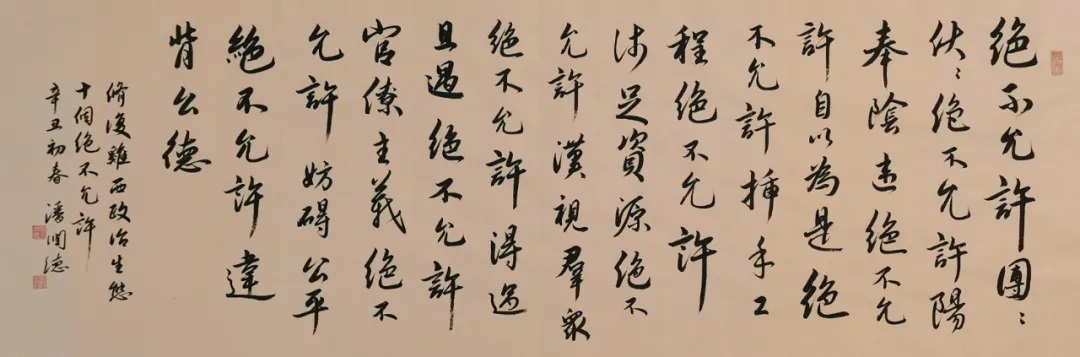 绝不允許團〻
伙〻绝不允許陽
奉陰违绝不允
許自以為是绝
不允許插手工
程绝不允許
涉足資源绝不
允許漠視羣衆
绝不允許得過
且過绝不允許
官僚主義绝不
允許妨碍公平
絶不允許違
背公德
脩復雞西政治生態
十個绝不允許
辛丑初春 潘潤德